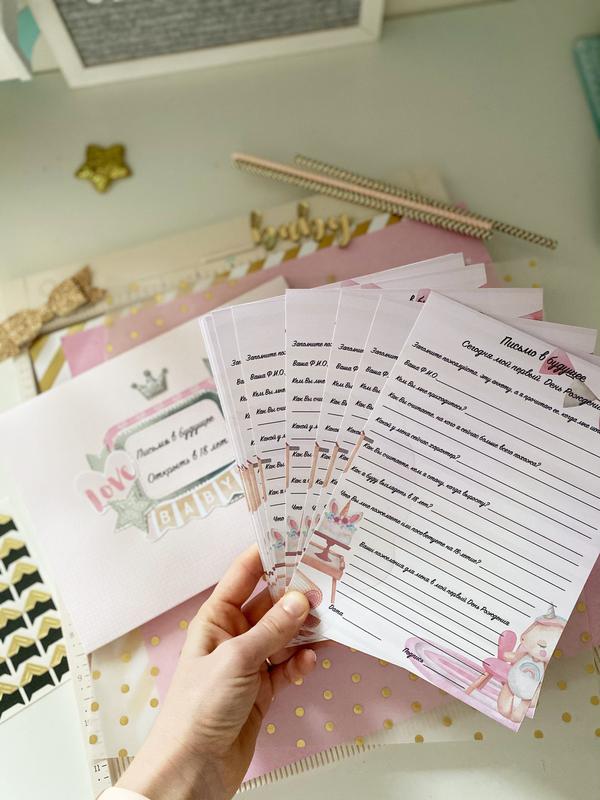 baby
Письма в будущее
Открыть в 18 лет
Love
BABY
Письмо в будущее
Сегодня мой первый День Рождения
Заполните пожалуйста, эту анкету, а я прочитаю ее, когда мне
Ваше Ф.И.О.
Кем Вы мне приходитесь?
Как Вы считаете, на кого я сейчас больше всего похожа?
Какой у меня сейчас характер?
Как Вы считаете, кем я стану, когда вырасту?
Как я буду выглядеть в 18 лет?
Что Вы мне пожелаете или посоветуете на 18-летие?
Ваши пожелания для меня в мой первый День Рождения
Дата
Подпись